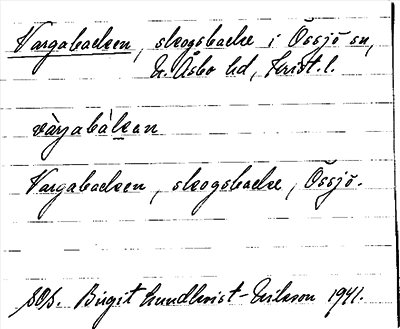 Vargabacken, skogsbacke i Össjö sn,
N. Åsbo hd, Krist. l.
vàrjabàkan
Vargabacken, skogsbacke, Össjö.
Birgit Lundkvist-Eriksson 1941.